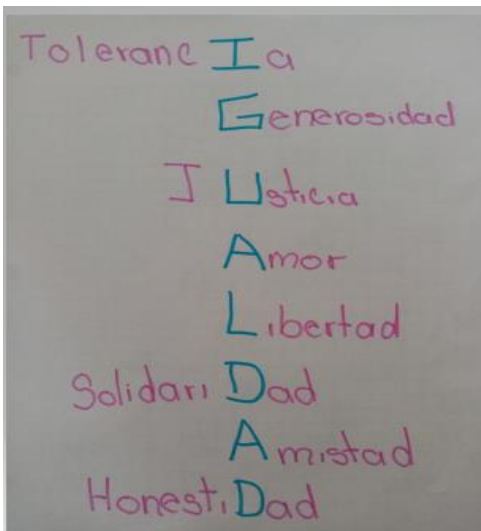 TolerancIa
Generosidad
JUsticia
Amor
Libertad
SolidariDad
Amistad
HonestiDad